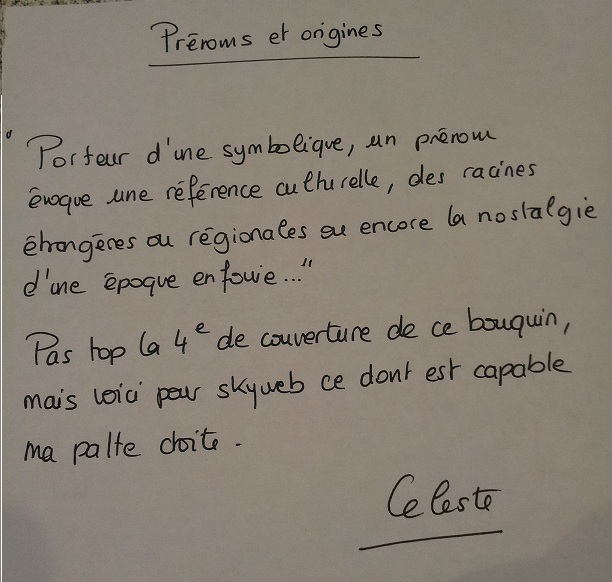 Prénoms et origines
"Porteur d'une symbolique, un prénom
évoque une référence culturelle, des racines
étrangères ou régionales ou encore la nostalgie
d'une époque enfouie..."
Pas top la 4e de couverture de ce bouquin,
mais voici pour skyweb ce dont est capable
ma patte droite.
Celeste